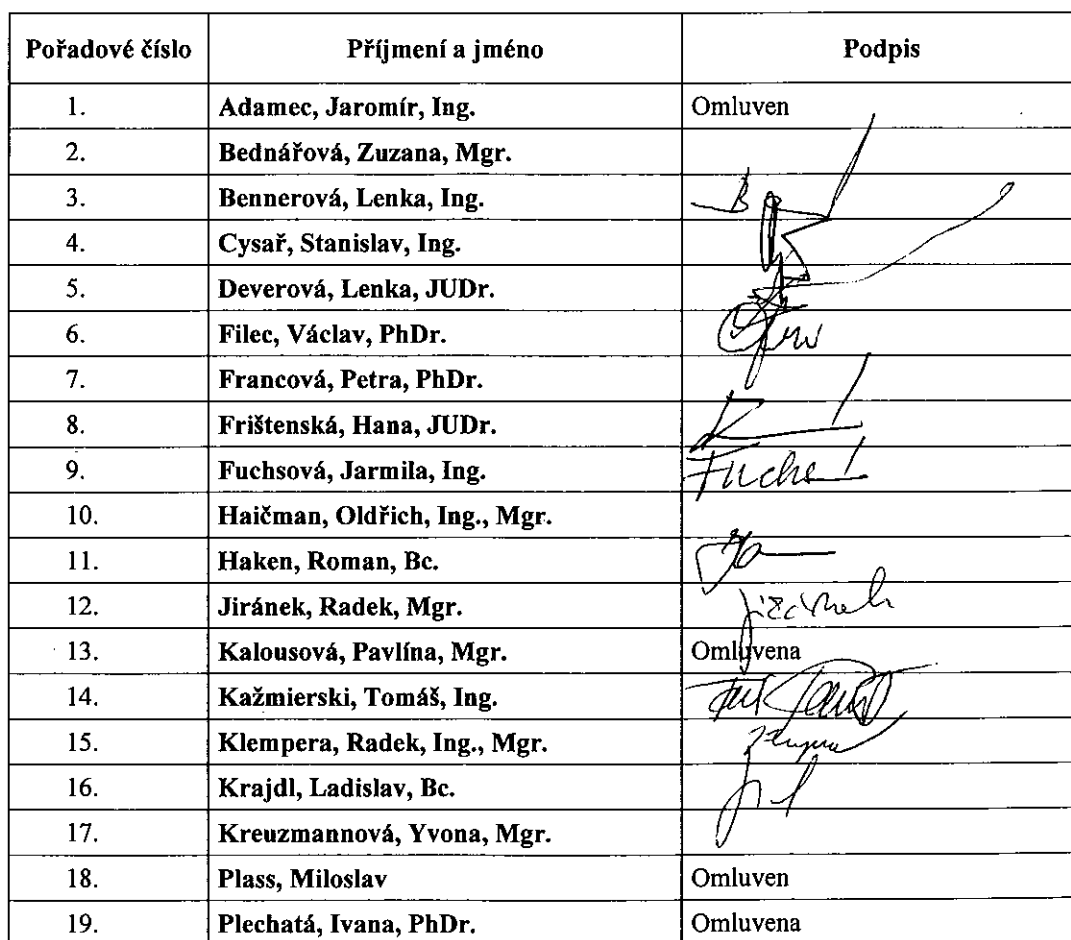 Pořadové číslo Příjmení a jméno Podpis
1. Adamec, Jaromír, Ing. Omluven
2. Bednářová, Zuzana, Mgr.
3. Bennerová, Lenka, Ing.
4. Cysař, Stanislav, Ing.
5. Deverová, Lenka, JUDr.
6. Filec, Václav, PhDr.
7. Francová, Petra, PhDr.
8. Frištenská, Hana, JUDr.
9. Fuchsová, Jarmila, Ing.
10. Haičman, Oldřich, Ing., Mgr.
11. Haken, Roman, Bc.
12. Jiránek, Radek, Mgr.
13. Kalousová, Pavlína, Mgr. Omluvena
14. Kažmierski, Tomáš, Ing.
15. Klempera, Radek, Ing., Mgr.
16. Krajdl, Ladislav, Bc.
17. Kreuzmannová, Yvona, Mgr.
18. Plass, Miloslav Omluven
19. Plechatá, Ivana, PhDr. Omluvena